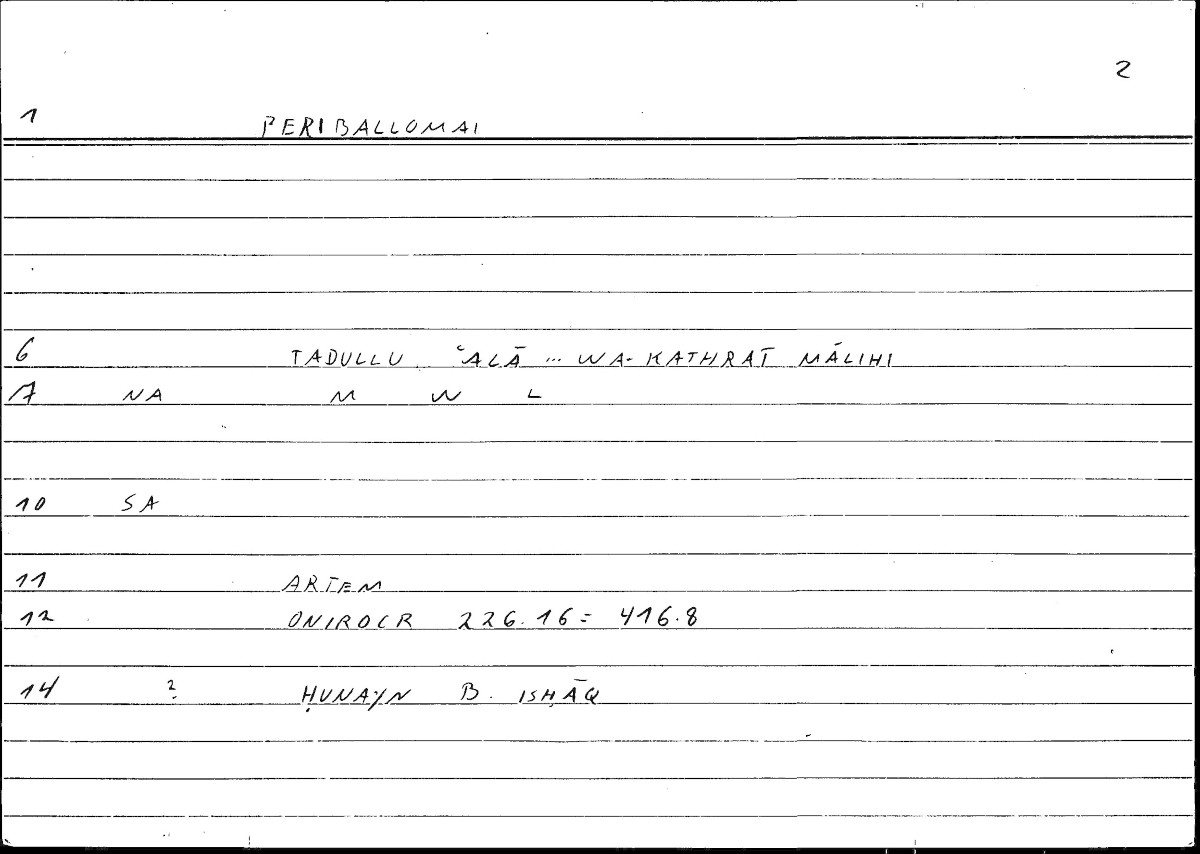 2
1 PERIBALLOMAI
6 TADULLU ʿALĀ ... WA-KATHRAT MĀLIHI
7 NA M W L
10 SA
11 ARTEM
12 ONIROCR 226.16 = 416.8
14 ? ḤUNAYN B. ISḤĀQ